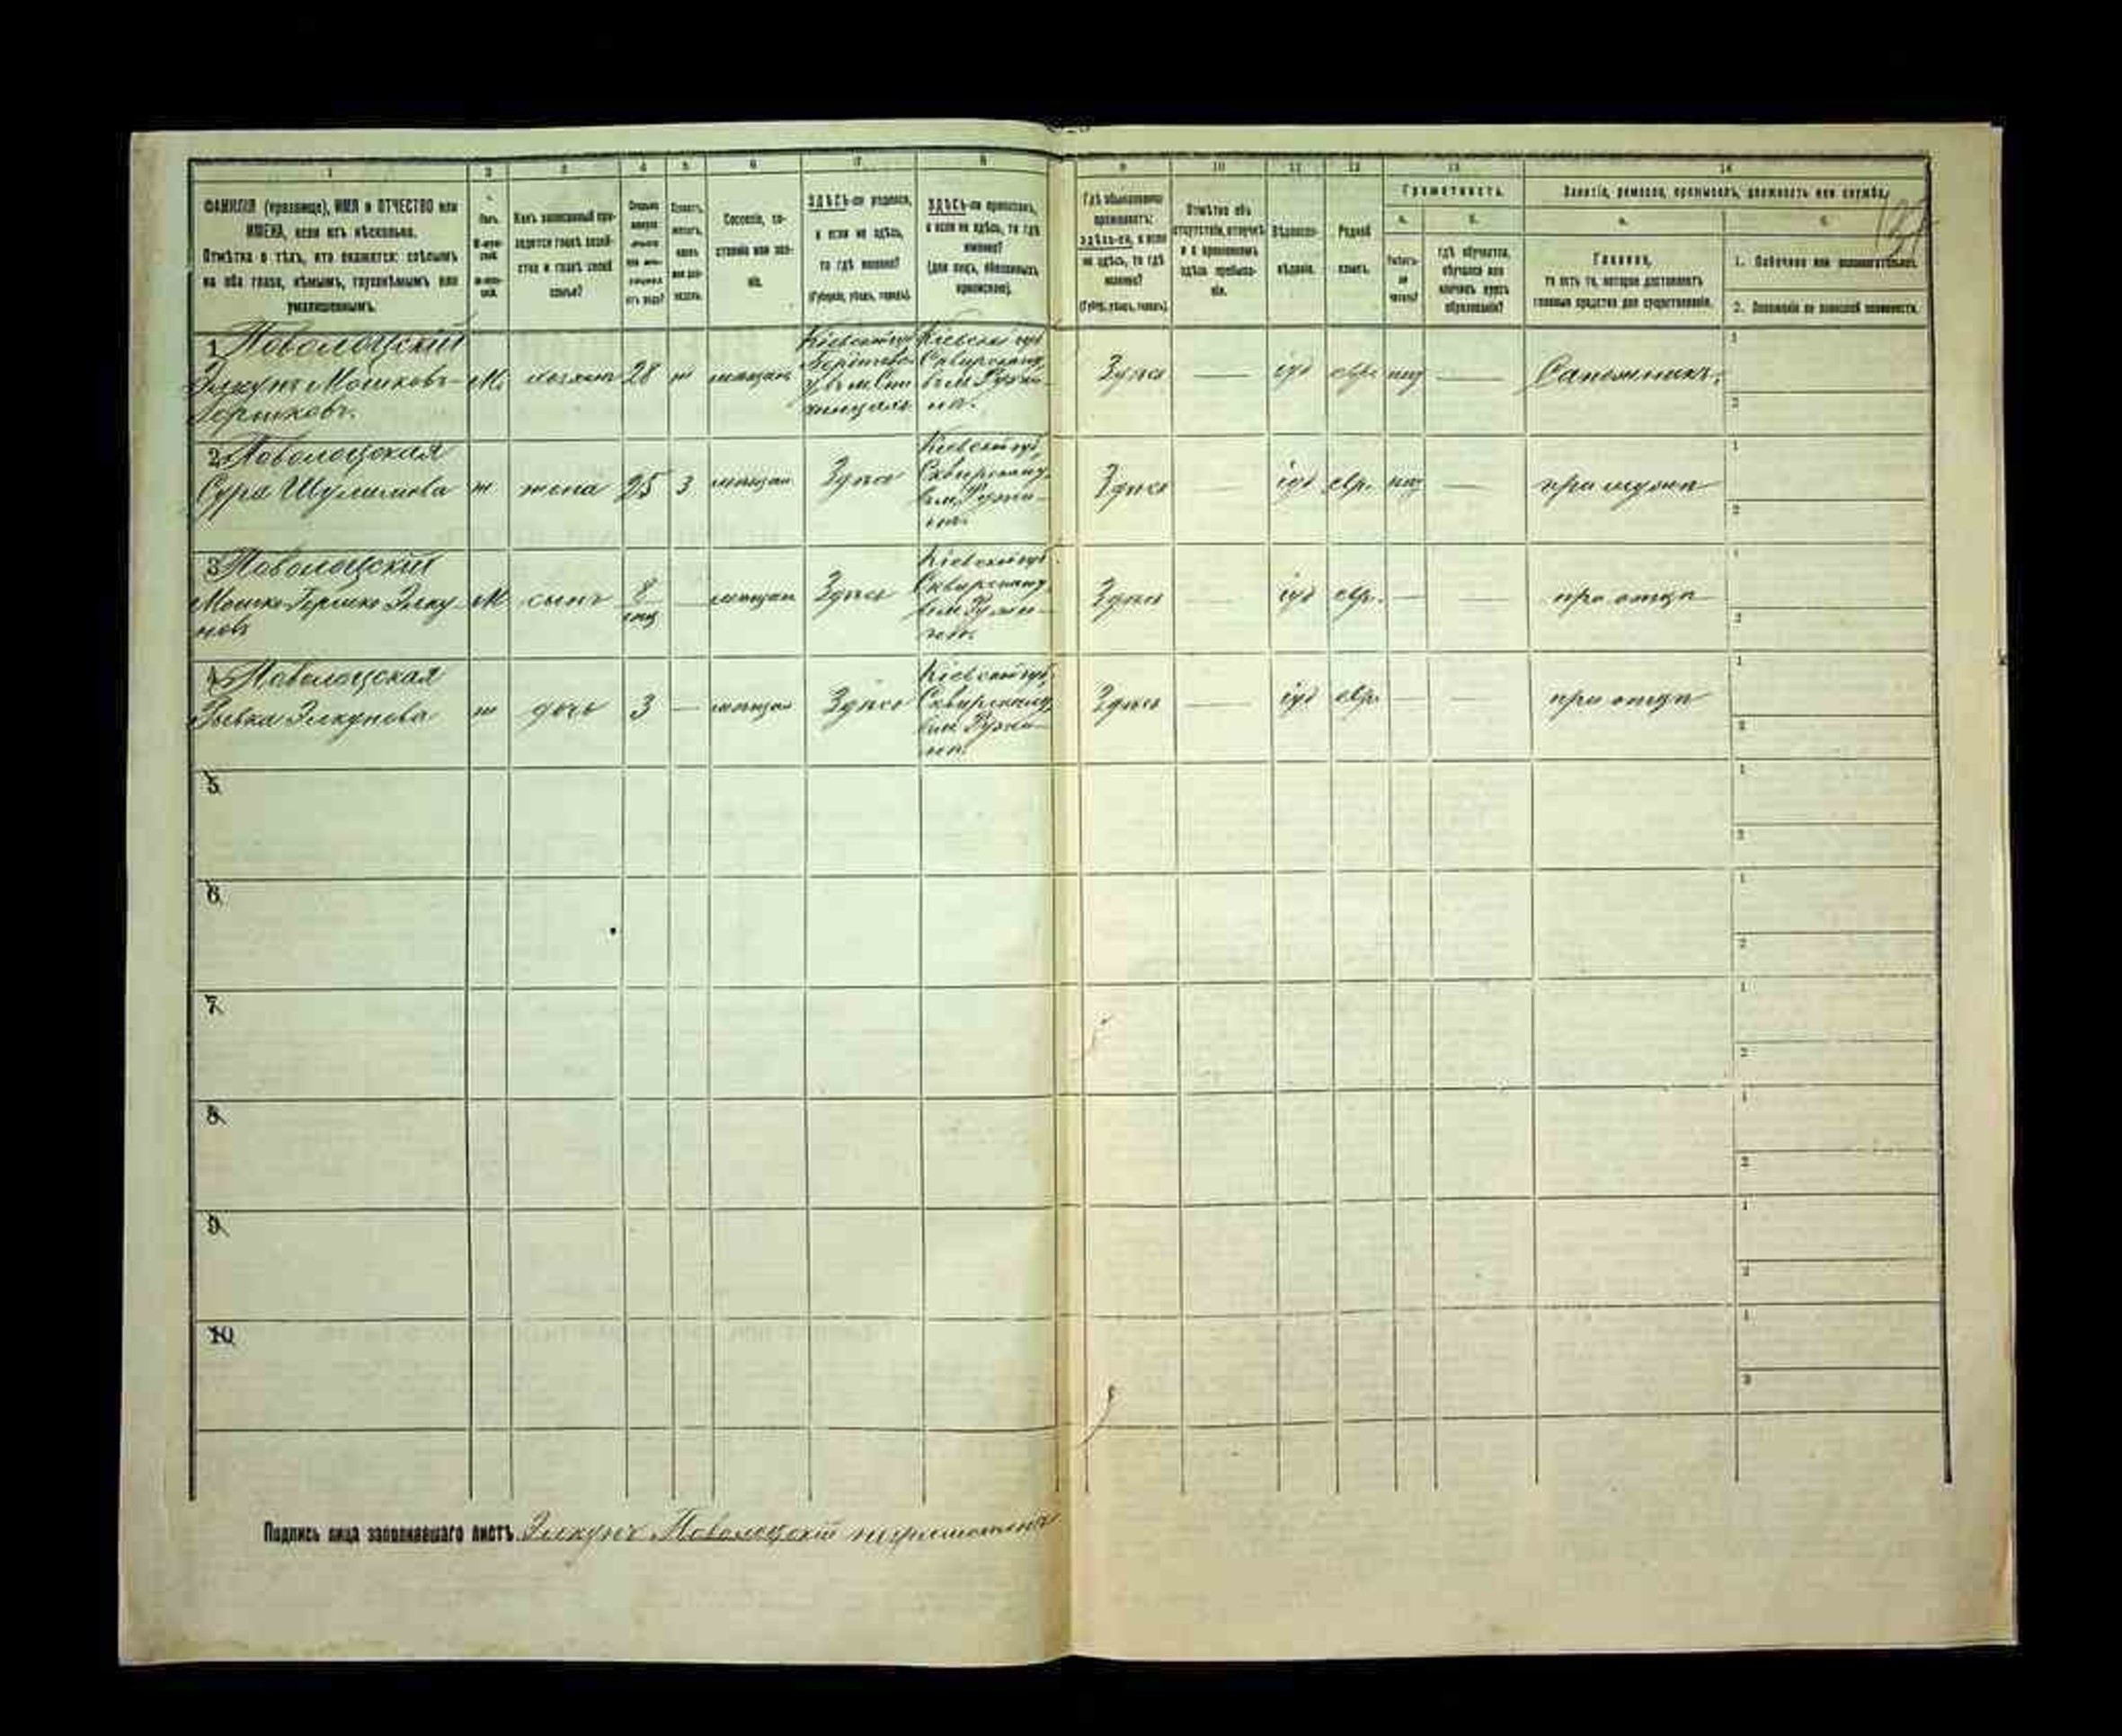 1 2 3 4 5 6 7 8 9 10 11 12 13 14
ФАМИЛІЯ (прозвище), ИМЯ и ОТЧЕСТВО или
ИМЕНА, если ихъ нѣсколько.
Отмѣтка о тѣхъ, кто окажется: слѣпымъ
на оба глаза, нѣмымъ, глухонѣмымъ или
умалишеннымъ.
Полъ.
Какъ записанный при-
ходится главѣ хозяй-
ства и главѣ своей
семьи?
Сословіе, со-
стояніе или зва-
ніе.
ЗДѢСЬ-ли родился,
а если не здѣсь,
то гдѣ именно?
(Губернія, уѣздъ, городъ).
ЗДѢСЬ-ли приписанъ,
а если не здѣсь, то гдѣ
именно?
(для лицъ, обязанныхъ
припискою).
Гдѣ обыкновенно
проживаетъ:
здѣсь-ли, а если
не здѣсь, то гдѣ
именно?
(Губер., уѣздъ, городъ).
Отмѣтка объ
отсутствіи, отлучкѣ
и о временномъ
здѣсь пребыва-
ніи.
Вѣроиспо-
вѣданіе.
Родной
языкъ.
Грамотность.
а. б.
Умѣетъ-
ли
читать?
гдѣ обучается,
обучался или
кончилъ курсъ
образованія?
Занятіе, ремесло, промыселъ, должность или служба.
а. б.
Главное,
то есть то, которое доставляетъ
главныя средства для существованія.
1. Побочное или вспомогательное.
2. Положеніе по воинской повинности.
1 Поволоцкій
Элкунъ Мошковъ-
Гершковъ.
М. хозяинъ 28 ж мѣщан
Кіевской губ
Бердичевс
у. въ м.
Кіевской губ
Сквирскаго у.
въ м. Ружи-
нѣ.
Здѣсь — іуд евр. нѣт — Сапожникъ.
1
2
2 Поволоцкая
Сура Шулимова ж жена 25 3 мѣщан Здѣсь
Кіевской губ.
Сквирскаго у.
въ м. Ружи-
нѣ.
Здѣсь — іуд евр. нѣт — при мужѣ
1
2
3 Поволоцкій
Мошко Гершко Элку-
новъ М сынъ 8 мѣщан Здѣсь
Кіевской губ
Сквирскаго у.
въ м. Ружи-
нѣ.
Здѣсь — іуд евр. — — при отцѣ
1
2
4 Поволоцкая
Рывка Элкунова ж дочь 3 — мѣщан Здѣсь
Кіевской губ.
Сквирскаго у.
въ м. Ружи-
нѣ.
Здѣсь — іуд евр. — — при отцѣ
1
2
5
1
2
6
1
2
7
1
2
8
1
2
9
1
2
10
1
2
Подпись лица заполнявшаго листъ Элкунъ Поволоцкій неграмотенъ